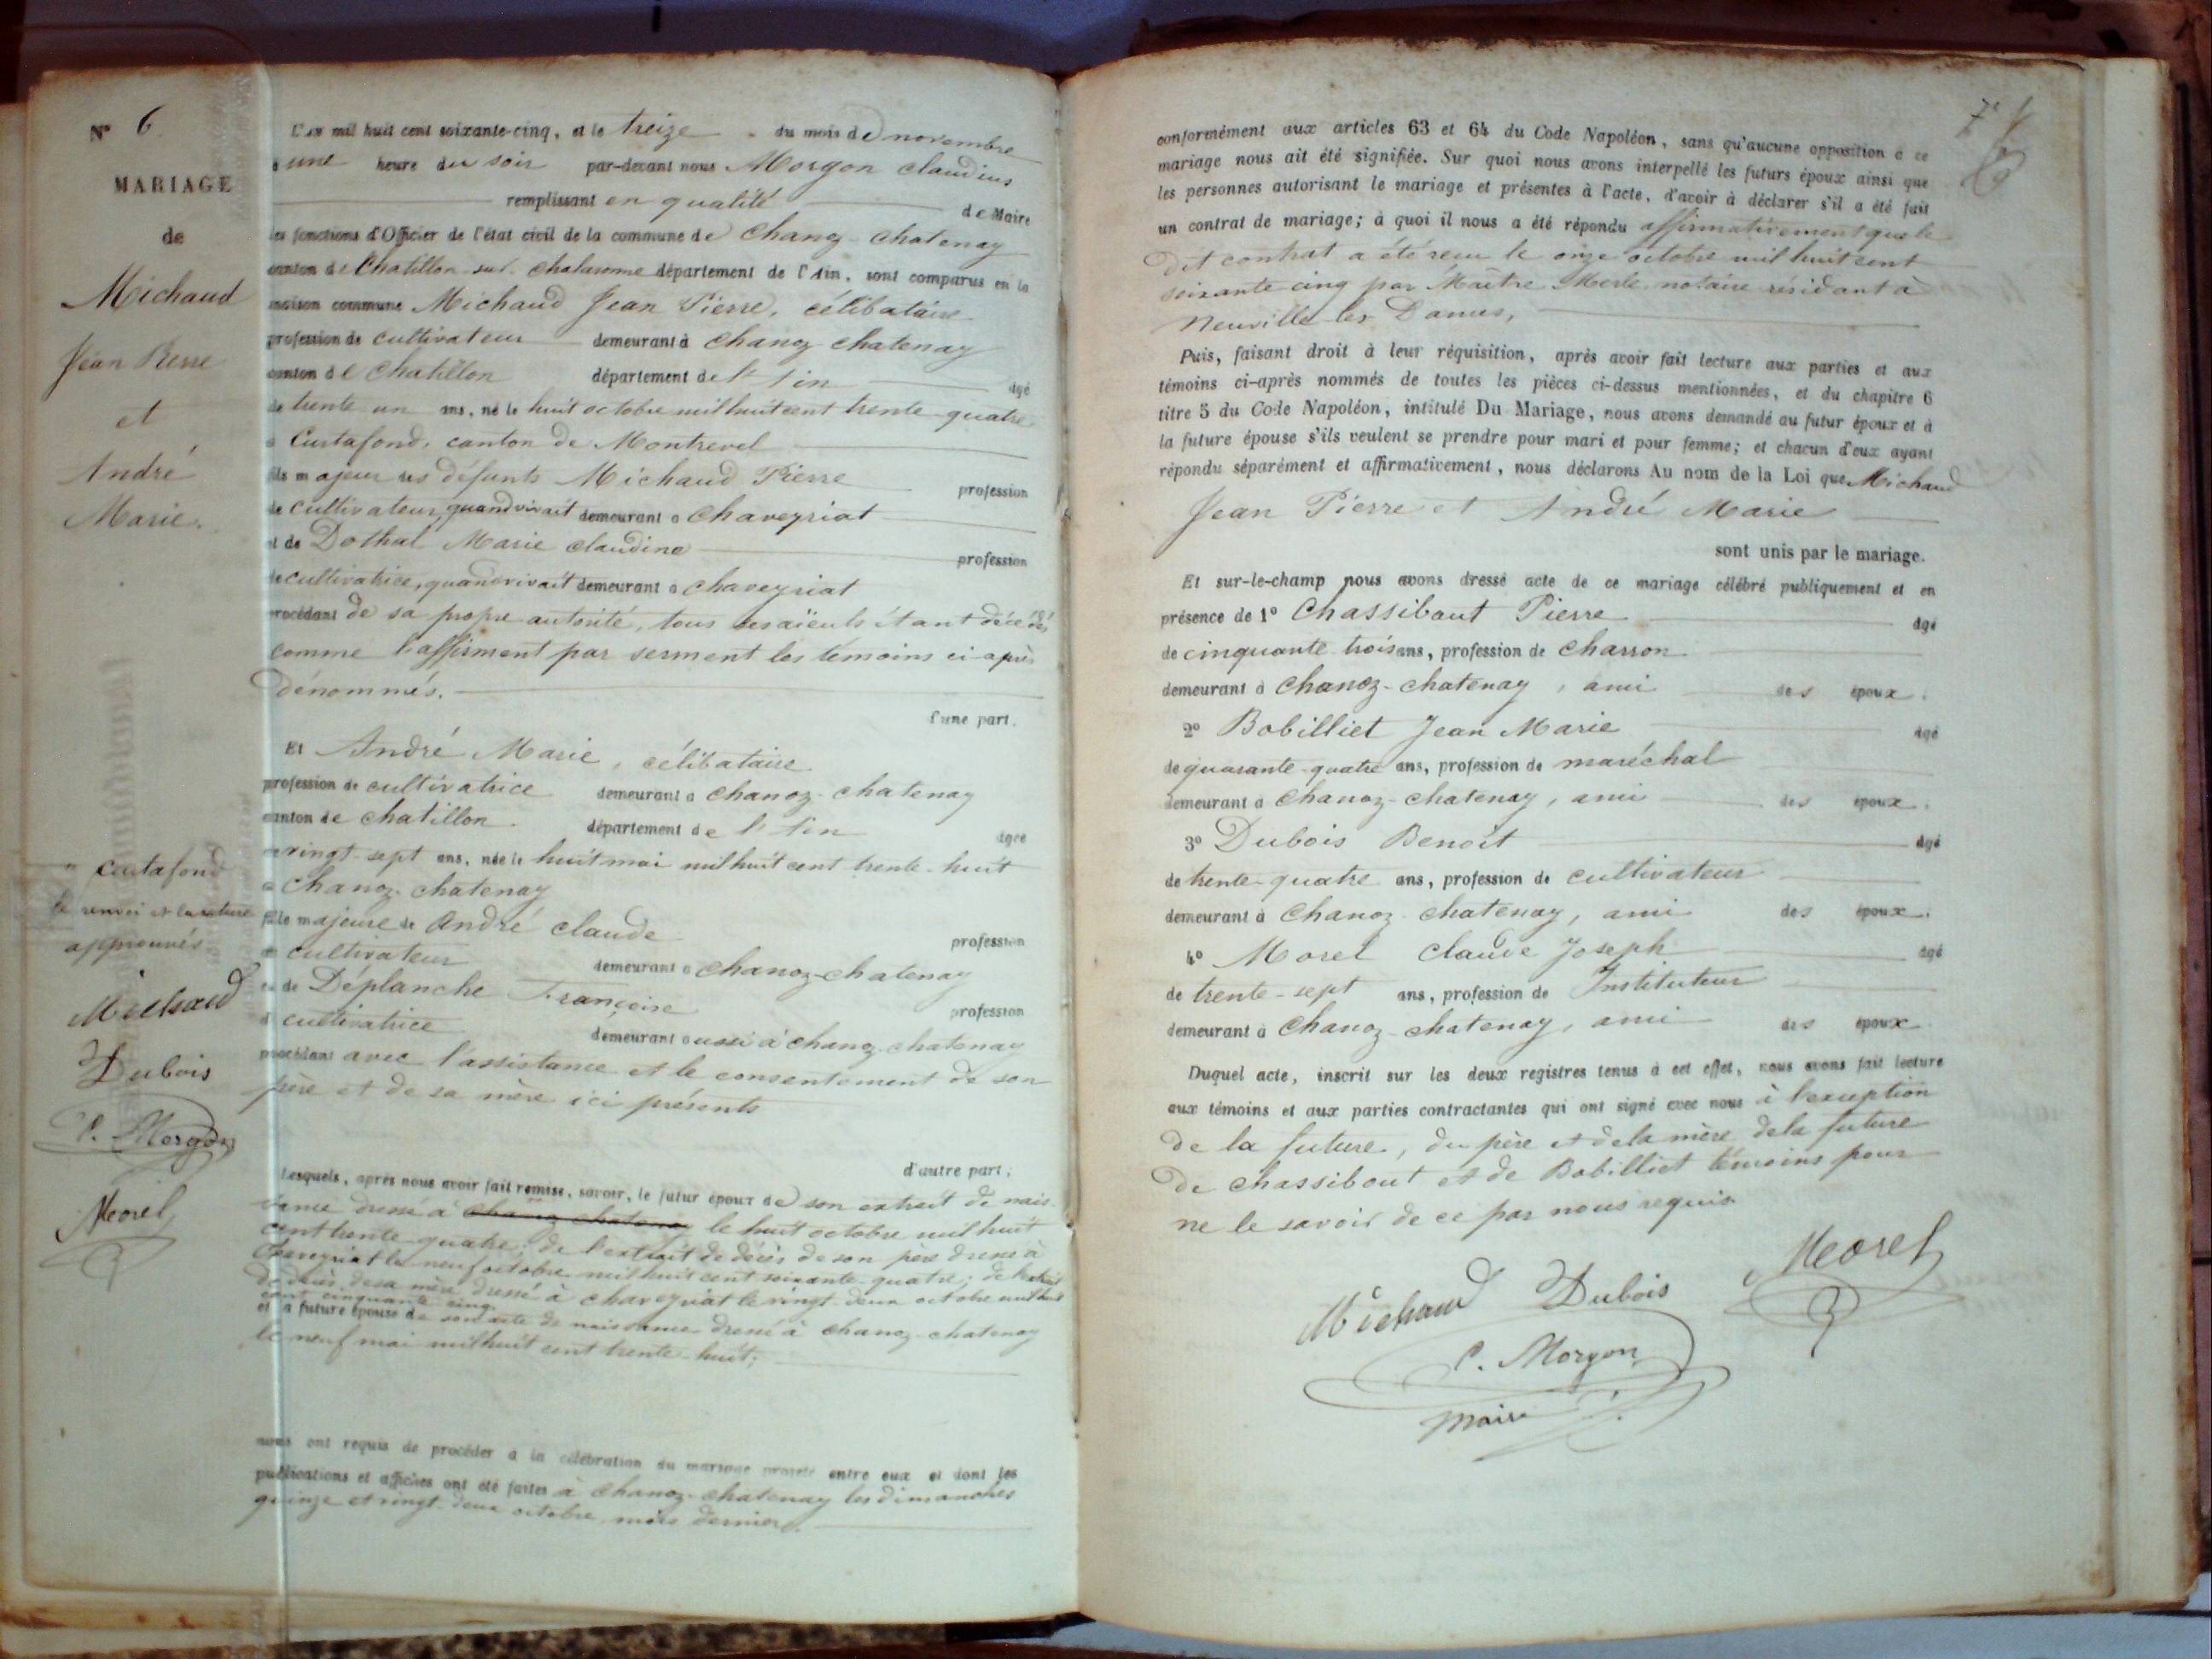 N° 6
MARIAGE
de
Michaud
Jean Pierre
et
André
Marie.
L'an mil huit cent soixante-cinq, et le treize du mois de novembre
à une heure du soir par-devant nous Morgon Claudius
remplissant en qualité de Maire
les fonctions d'Officier de l'état civil de la commune de Chanoz-Chatenay
canton de Chatillon sur Chalaronne département de l'Ain, sont comparus en la
maison commune Michaud Jean Pierre, célibataire
profession de cultivateur demeurant à Chanoz Chatenay
canton de Chatillon département de l'Ain âgé
de trente un ans, né le huit octobre mil huit cent trente-quatre
à Curtafond, canton de Montrevel
fils majeur des défunts Michaud Pierre profession
de cultivateur, quand vivait demeurant à Chaveyriat
et de Dothal Marie Claudine profession
de cultivatrice, quand vivait demeurant à Chaveyriat
procédant de sa propre autorité, tous ses aïeuls étant décédés
comme l'affirment par serment les témoins ci-après
dénommés.
d'une part.
Et André Marie, célibataire
profession de cultivatrice demeurant à Chanoz-Chatenay
canton de Chatillon département de l'Ain âgée
de vingt-sept ans, née le huit mai mil huit cent trente-huit
à Chanoz-Chatenay
fille majeure de André Claude profession
de cultivateur demeurant à Chanoz-Chatenay
et de Déplanche Françoise profession
de cultivatrice demeurant aussi à Chanoz-Chatenay
procédant avec l'assistance et le consentement de son
père et de sa mère ici présents
d'autre part,
Lesquels, après nous avoir fait remise, savoir, le futur époux de son extrait de nais-
sance dressé à Chanoz Chatenay le huit octobre mil huit
cent trente-quatre; de l'extrait de décès de son père dressé à
Chaveyriat le neuf octobre mil huit cent soixante-quatre; de l'extrait
de décès de sa mère dressé à Chaveyriat le vingt-deux octobre mil huit
cent cinquante cinq
et la future épouse de son acte de naissance dressé à Chanoz-Chatenay
le neuf mai mil huit cent trente-huit;
nous ont requis de procéder à la célébration du mariage projeté entre eux et dont les
publications et affiches ont été faites à Chanoz-Chatenay les dimanches
quinze et vingt-deux octobre mois dernier.
Curtafond
le renvoi et la rature
approuvés
Michaud
Dubois
C. Morgon
Morel
conformément aux articles 63 et 64 du Code Napoléon, sans qu'aucune opposition à ce
mariage nous ait été signifiée. Sur quoi nous avons interpellé les futurs époux ainsi que
les personnes autorisant le mariage et présentes à l'acte, d'avoir à déclarer s'il a été fait
un contrat de mariage; à quoi il nous a été répondu affirmativement que le
dit contrat a été reçu le onze octobre mil huit cent
soixante-cinq par Maître Merle notaire résidant à
Neuville-les-Dames,
Puis, faisant droit à leur réquisition, après avoir fait lecture aux parties et aux
témoins ci-après nommés de toutes les pièces ci-dessus mentionnées, et du chapitre 6
titre 5 du Code Napoléon, intitulé Du Mariage, nous avons demandé au futur époux et à
la future épouse s'ils veulent se prendre pour mari et pour femme; et chacun d'eux ayant
répondu séparément et affirmativement, nous déclarons Au nom de la Loi que Michaud
Jean Pierre et André Marie
sont unis par le mariage.
Et sur-le-champ nous avons dressé acte de ce mariage célébré publiquement et en
présence de 1° Chassibout Pierre âgé
de cinquante trois ans, profession de charron
demeurant à Chanoz-Chatenay, ami des époux.
2° Bobilliet Jean Marie âgé
de quarante-quatre ans, profession de maréchal
demeurant à Chanoz-Chatenay, ami des époux.
3° Dubois Benoît âgé
de trente-quatre ans, profession de cultivateur
demeurant à Chanoz-Chatenay, ami des époux.
4° Morel Claude Joseph âgé
de trente-sept ans, profession de Instituteur
demeurant à Chanoz-Chatenay, ami des époux
Duquel acte, inscrit sur les deux registres tenus à cet effet, nous avons fait lecture
aux témoins et aux parties contractantes qui ont signé avec nous à l'exception
de la future, du père et de la mère de la future
de Chassibout et de Bobilliet témoins pour
ne le savoir de ce par nous requis.
Michaud Dubois Morel
C. Morgon
maire